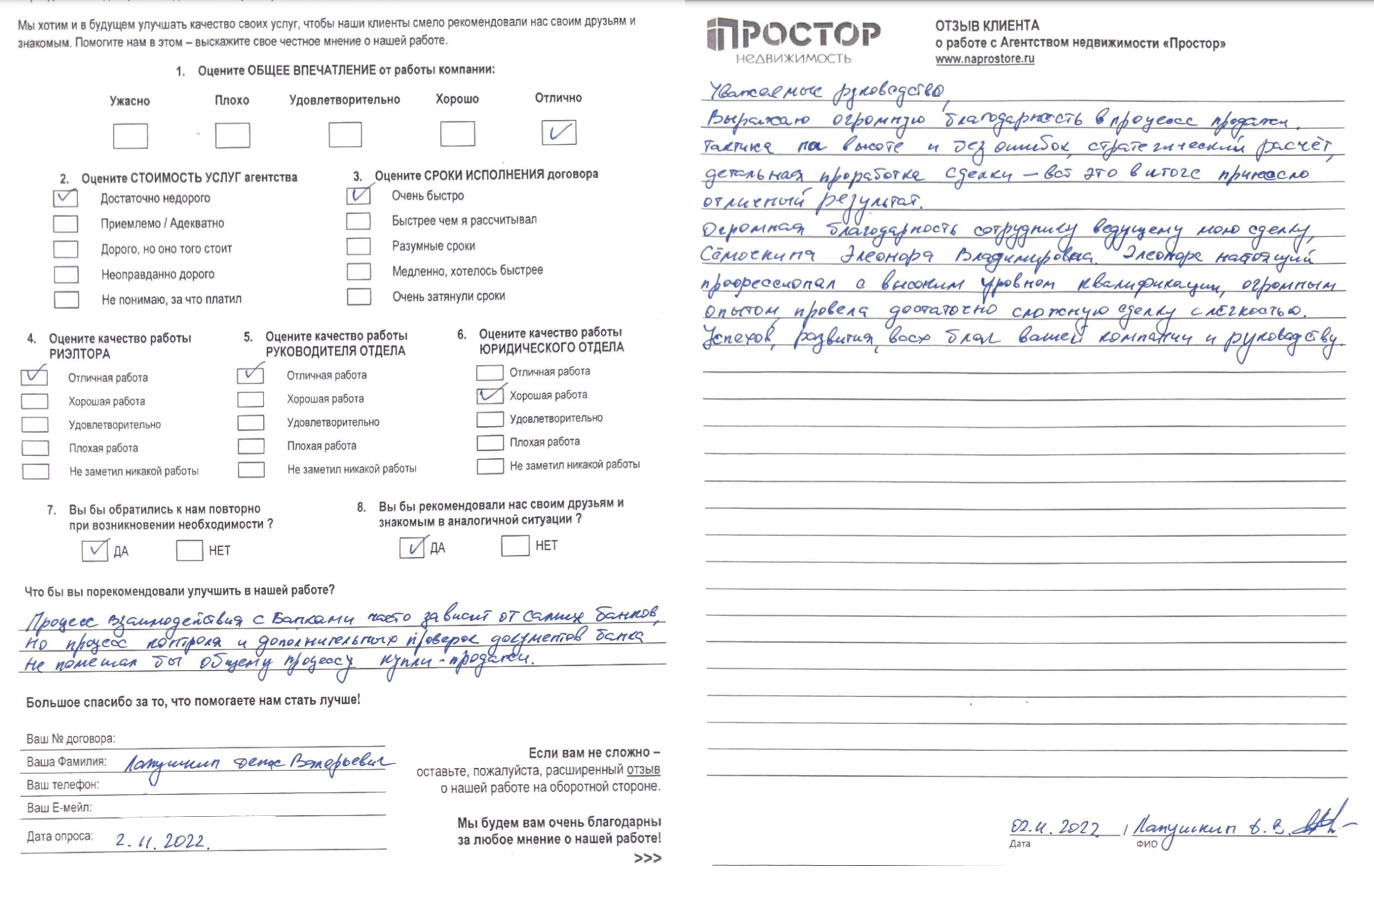 Мы хотим и в будущем улучшать качество своих услуг, чтобы наши клиенты смело рекомендовали нас своим друзьям и
знакомым. Помогите нам в этом – выскажите свое честное мнение о нашей работе.
1. Оцените ОБЩЕЕ ВПЕЧАТЛЕНИЕ от работы компании:
Ужасно Плохо Удовлетворительно Хорошо Отлично
2. Оцените СТОИМОСТЬ УСЛУГ агентства
Достаточно недорого
Приемлемо / Адекватно
Дорого, но оно того стоит
Неоправданно дорого
Не понимаю, за что платил
3. Оцените СРОКИ ИСПОЛНЕНИЯ договора
Очень быстро
Быстрее чем я рассчитывал
Разумные сроки
Медленно, хотелось быстрее
Очень затянули сроки
4. Оцените качество работы
РИЭЛТОРА
Отличная работа
Хорошая работа
Удовлетворительно
Плохая работа
Не заметил никакой работы
5. Оцените качество работы
РУКОВОДИТЕЛЯ ОТДЕЛА
Отличная работа
Хорошая работа
Удовлетворительно
Плохая работа
Не заметил никакой работы
6. Оцените качество работы
ЮРИДИЧЕСКОГО ОТДЕЛА
Отличная работа
Хорошая работа
Удовлетворительно
Плохая работа
Не заметил никакой работы
7. Вы бы обратились к нам повторно
при возникновении необходимости ?
ДА НЕТ
8. Вы бы рекомендовали нас своим друзьям и
знакомым в аналогичной ситуации ?
ДА НЕТ
Что бы вы порекомендовали улучшить в нашей работе?
Процесс взаимодействия с Банками часто зависит от самих банков,
но процесс контроля и дополнительных проверок документов банка
не помешал бы общему процессу купли-продажи.
Большое спасибо за то, что помогаете нам стать лучше!
Ваш № договора:
Ваша Фамилия: Лапушкин Денис Валерьевич
Ваш телефон:
Ваш Е-мейл:
Дата опроса: 2.11.2022.
Если вам не сложно –
оставьте, пожалуйста, расширенный отзыв
о нашей работе на оборотной стороне.
Мы будем вам очень благодарны
за любое мнение о нашей работе!
>>>
ПРОСТОР
НЕДВИЖИМОСТЬ
ОТЗЫВ КЛИЕНТА
о работе с Агентством недвижимости «Простор»
www.naprostore.ru
Уважаемые руководство,
Выражаю огромную благодарность в процессе продажи.
тактика на высоте и без ошибок, стратегический расчёт,
детальная проработка сделки – всё это в итоге принесло
отличный результат.
Огромная благодарность сотруднику ведущему мою сделку,
Самоскина Элеонора Владимировна. Элеонора настоящий
профессионал с высоким уровнем квалификации, огромным
опытом провела достаточно сложную сделку с лёгкостью.
Успехов, развития, всех благ вашей компании и руководству.
02.11.2022 / Лапушкин Д.В.
Дата ФИО